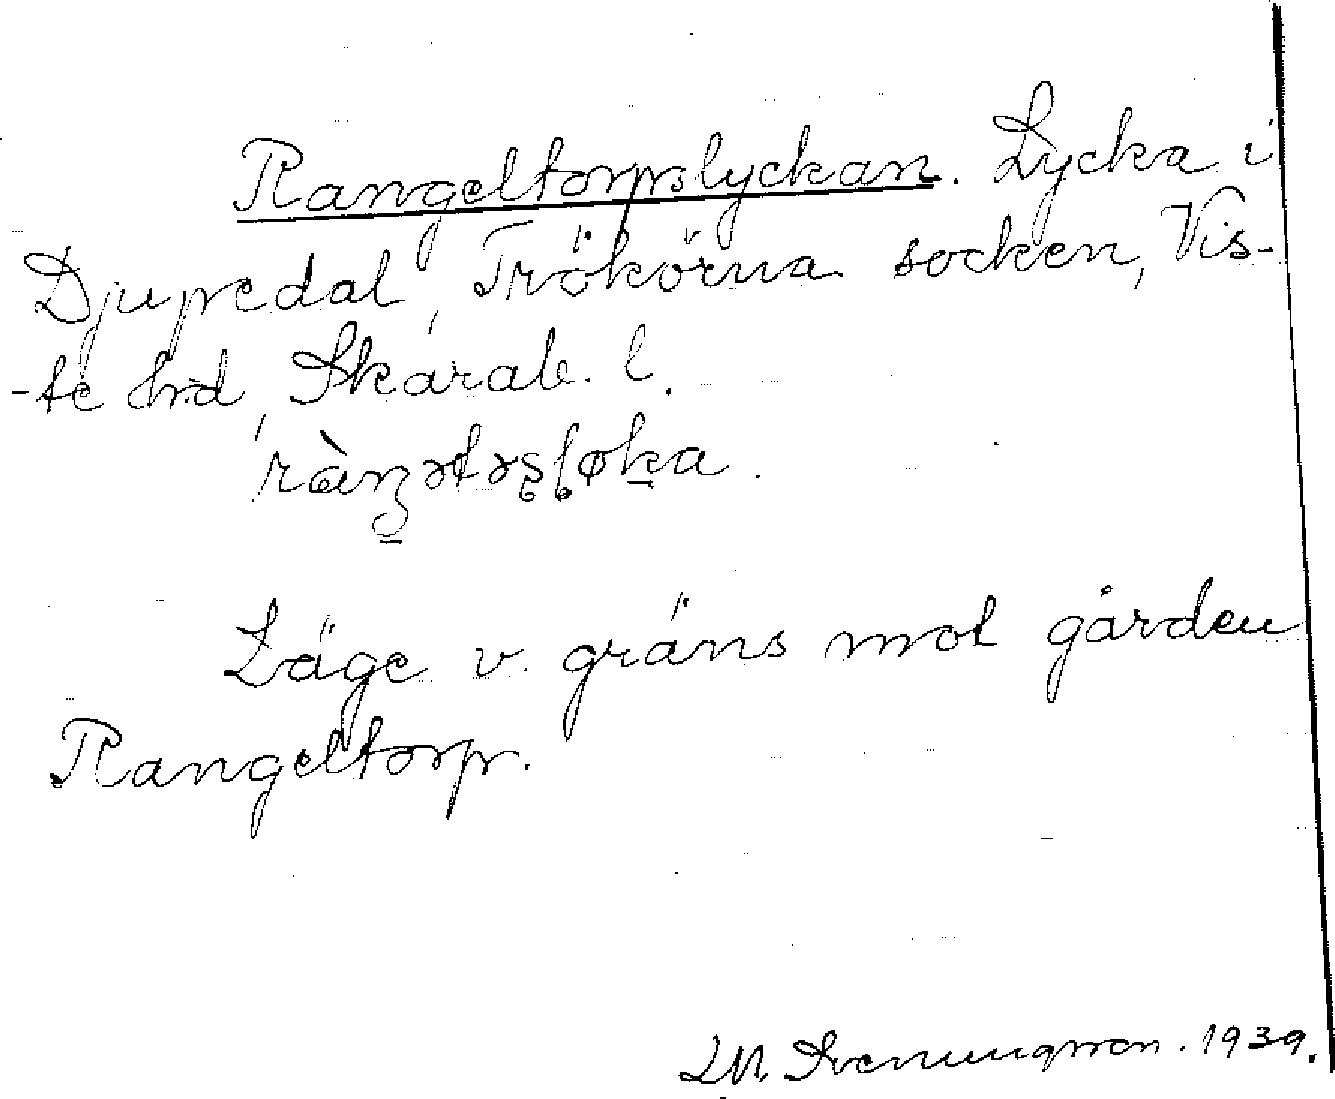 Rangeltorpslyckan. Lycka i
Djupedal, Trökörna socken, Vis-
-te hrd, Skarab. l.
Läge v. gräns mot gården
Rangeltorp.
Svenungsson. 1939.